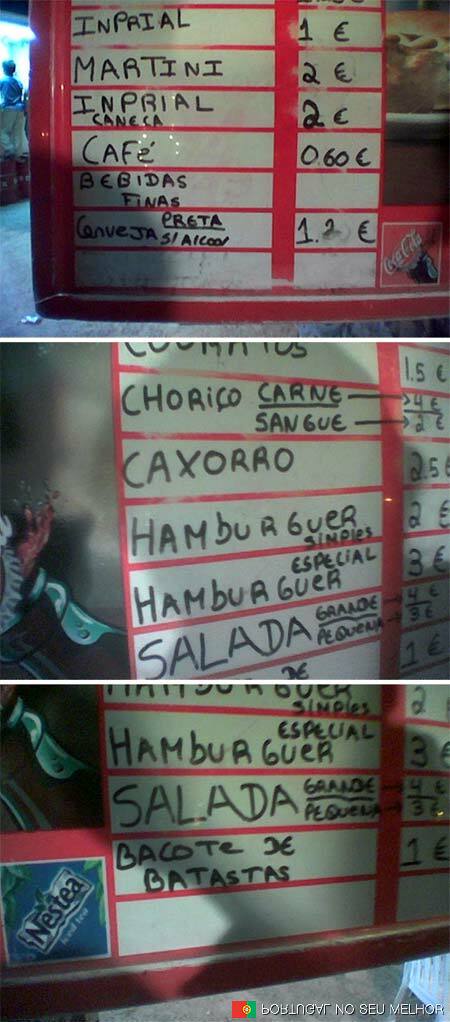 INPRIAL 1 €
MARTINI 2 €
INPRIAL 2 €
CANECA
CAFÉ 0.60 €
BEBIDAS
FINAS
CERVEJA PRETA 1.2 €
S/ALCOOL
Coca-Cola
1.5 €
CHORIÇO CARNE 4 €
SANGUE 2 €
CAXORRO 2.5 €
HAMBURGUER 2 €
SIMPLES
ESPECIAL 3 €
HAMBURGUER
SALADA GRANDE 4 €
PEQUENA 3 €
DE 1 €
HAMBURGUER 2
SIMPLES
ESPECIAL 3 €
HAMBURGUER
SALADA GRANDE 4 €
PEQUENA 3 €
BACOTE DE 1 €
BATASTAS
Nestea
PORTUGAL NO SEU MELHOR